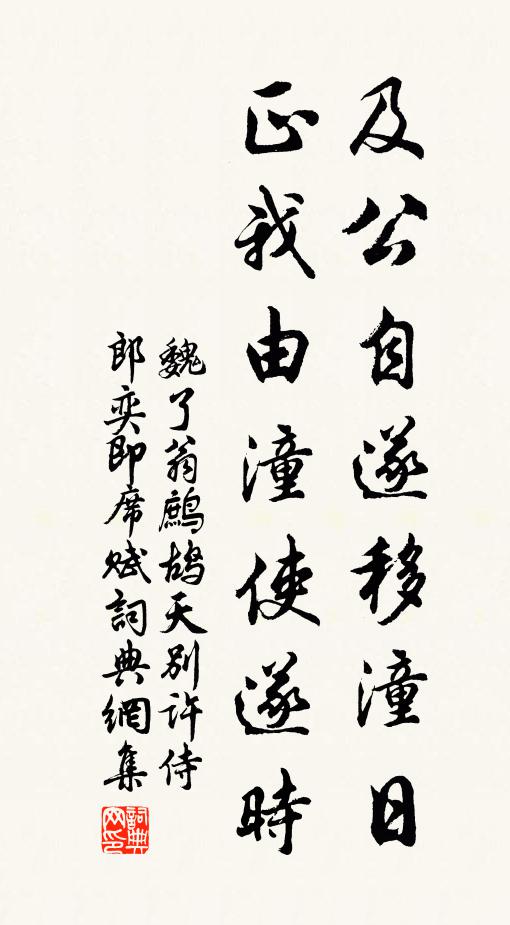 及公自遂移潼日
正我由潼使遂時
魏了翁鷓鴣天別許侍
郎奕即席賦詞典網集
詞典网印